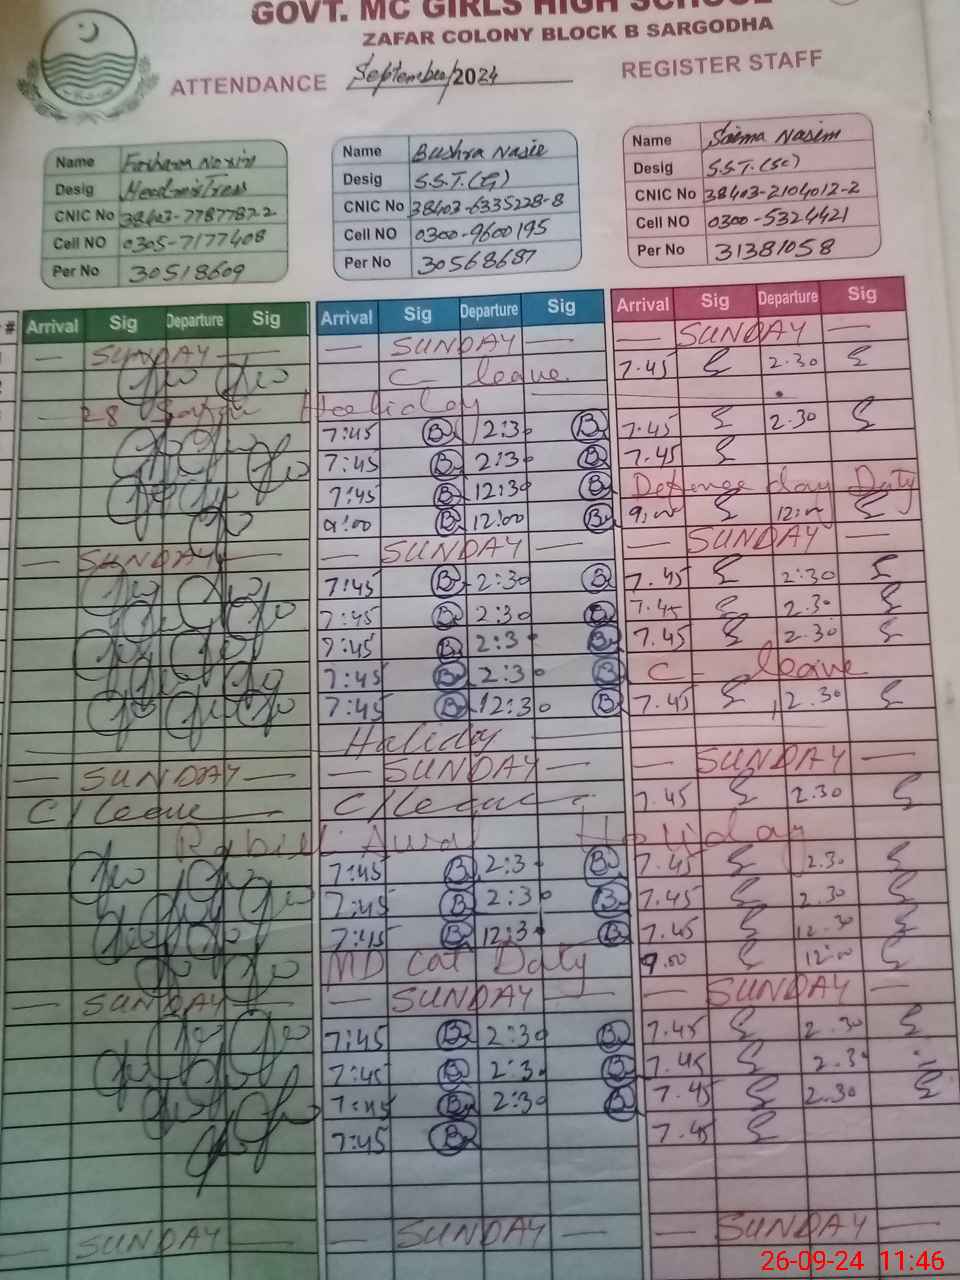 GOVT. MC GIRLS HIGH SCHOOL
ZAFAR COLONY BLOCK B SARGODHA
ATTENDANCE September/2024 REGISTER STAFF
Name
Desig Headmistress
CNIC No 38403-7787787-2
Cell NO 0305-7177408
Per No 30518609
Name Bushra Nasir
Desig S.S.T.(G)
CNIC No 38403-6335228-8
Cell NO 0300-9600195
Per No 30568687
Name Saima Nasim
Desig S.S.T.(SC)
CNIC No 38403-2104012-2
Cell NO 0300-5324421
Per No 31381058
# Arrival Sig Departure Sig Arrival Sig Departure Sig Arrival Sig Departure Sig
— SUNDAY — — SUNDAY — — SUNDAY —
C leave 7.45 2.30
Holiday
7:45 B 2:30 B 7.45 2.30
7:45 B 2:30 B 7.45
7:45 B 12:30 B Defence day Duty
9:00 B 12:00 B 9:00 12:00
— SUNDAY — — SUNDAY — — SUNDAY —
7:45 B 2:30 B 7.45 2:30
7:45 B 2:30 B 7.45 2.30
7:45 B 2:30 B 7.45 2.30
7:45 B 2:30 B C leave
7:45 B 12:30 B 7.45 12.30
Haliday
— SUNDAY — — SUNDAY — — SUNDAY —
C/Leave — C/Leave — 7.45 2:30
Awal Holiday
7:45 B 2:30 B 7.45 2.30
7:45 B 2:30 B 7.45 2.30
7:45 B 12:30 B 7.45 12.30
MD Cat Duty 9.00 12:00
— SUNDAY — — SUNDAY — — SUNDAY —
7:45 B 2:30 B 7.45 2.30
7:45 B 2:30 B 7.45 2.30
7:45 B 2:30 B 7.45 2.30
7:45 B 7.45
— SUNDAY — — SUNDAY — — SUNDAY —
26-09-24 11:46